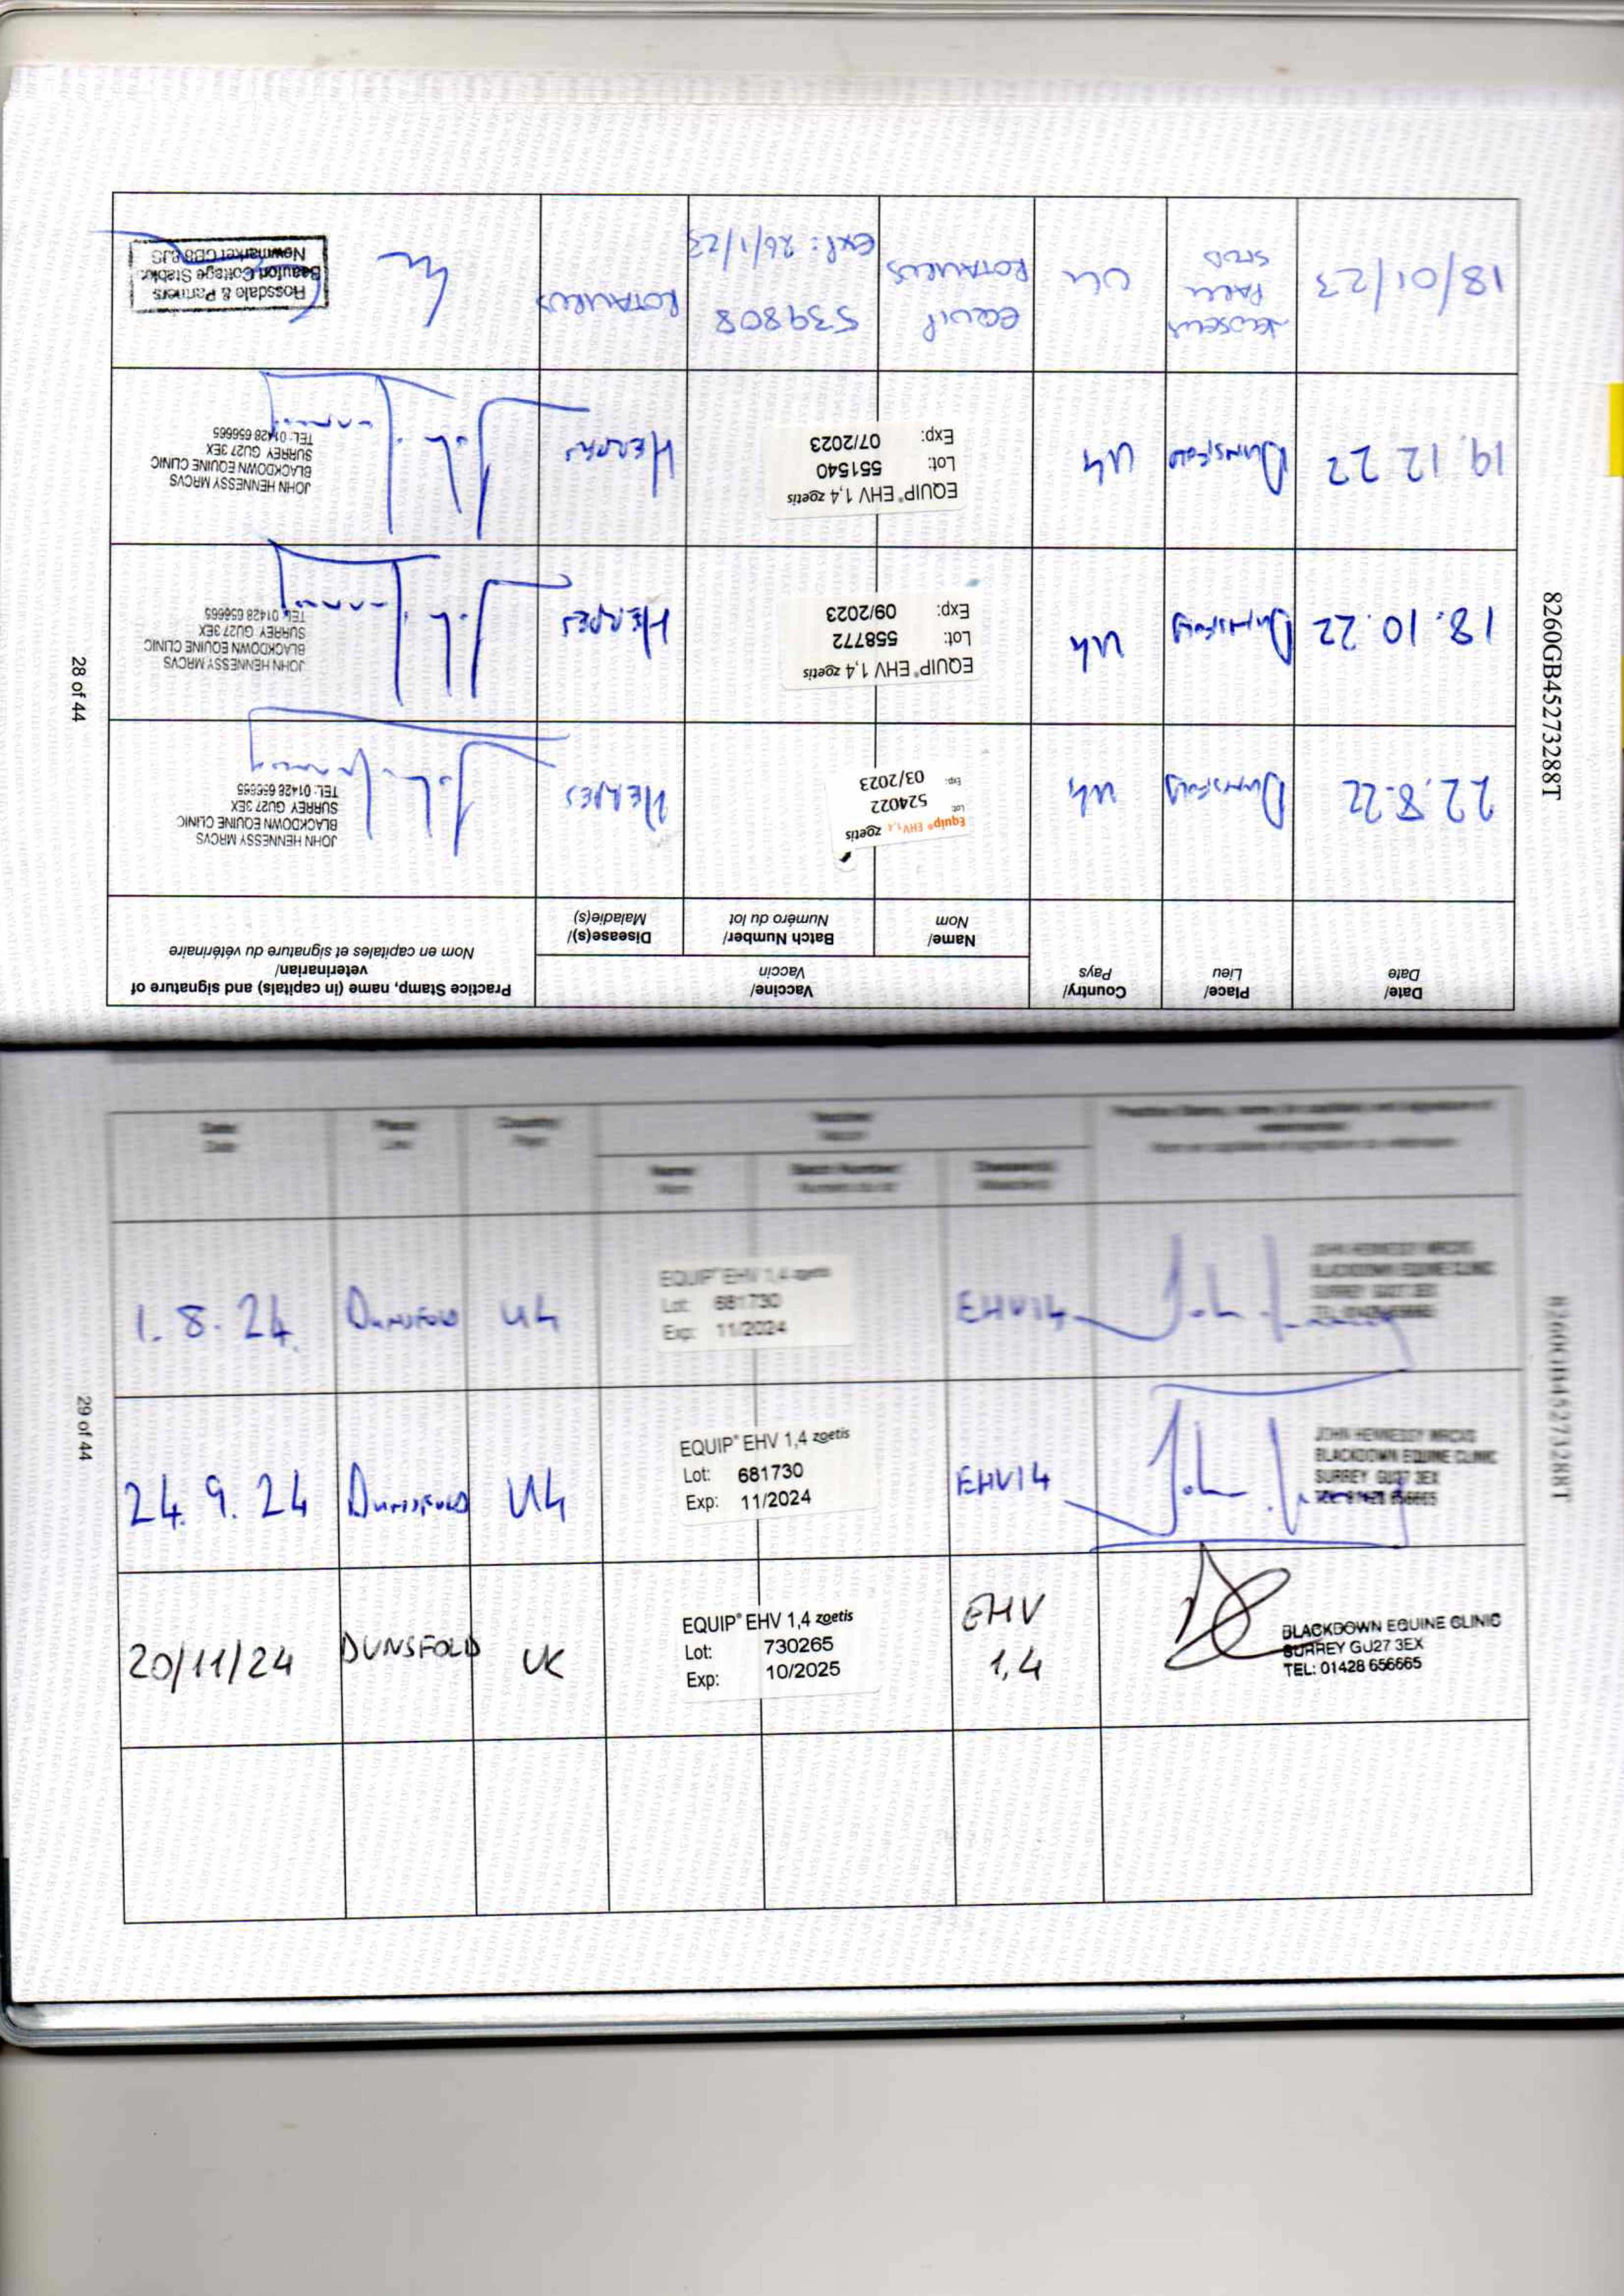 8260GB45273288T
28 of 44
Date/
Date
Place/
Lieu
Country/
Pays
Vaccine/
Vaccin
Name/
Nom
Batch Number/
Numéro du lot
Disease(s)/
Maladie(s)
Practice Stamp, name (in capitals) and signature of
veterinarian/
Nom en capitales et signature du vétérinaire
22.8.22
Dunsfold
UK
Equip® EHV 1,4 zoetis
Lot: 524022
Exp: 03/2023
HERPES
JOHN HENNESSY MRCVS
BLACKDOWN EQUINE CLINIC
SURREY GU27 3EX
TEL: 01428 656665
18.10.22
Dunsfold
UK
EQUIP® EHV 1,4 zoetis
Lot: 558772
Exp: 09/2023
HERPES
JOHN HENNESSY MRCVS
BLACKDOWN EQUINE CLINIC
SURREY GU27 3EX
TEL: 01428 656665
19.12.22
Dunsfold
UK
EQUIP® EHV 1,4 zoetis
Lot: 551540
Exp: 07/2023
HERPES
JOHN HENNESSY MRCVS
BLACKDOWN EQUINE CLINIC
SURREY GU27 3EX
TEL: 01428 656665
18/01/23
PARK
STUD
UK
EQUIP
ROTAVIRUS
539808
EXP: 26/1/23
ROTAVIRUS
Rossdale & Partners
Beaufort Cottage Stables
Newmarket CB8 8JS
29 of 44
Date/
Date
Place/
Lieu
Country/
Pays
Vaccine/
Vaccin
Name/
Nom
Batch Number/
Numéro du lot
Disease(s)/
Maladie(s)
Practice Stamp, name (in capitals) and signature of
veterinarian/
Nom en capitales et signature du vétérinaire
1.8.24
DUNSFOLD
UK
EQUIP® EHV 1,4 zoetis
Lot: 681730
Exp: 11/2024
EHV14
JOHN HENNESSY MRCVS
BLACKDOWN EQUINE CLINIC
SURREY GU27 3EX
TEL: 01428 656665
24.9.24
DUNSFOLD
UK
EQUIP® EHV 1,4 zoetis
Lot: 681730
Exp: 11/2024
EHV14
JOHN HENNESSY MRCVS
BLACKDOWN EQUINE CLINIC
SURREY GU27 3EX
TEL: 01428 656665
20/11/24
DUNSFOLD
UK
EQUIP® EHV 1,4 zoetis
Lot: 730265
Exp: 10/2025
EHV
1,4
BLACKDOWN EQUINE CLINIC
SURREY GU27 3EX
TEL: 01428 656665
8260GB45273288T